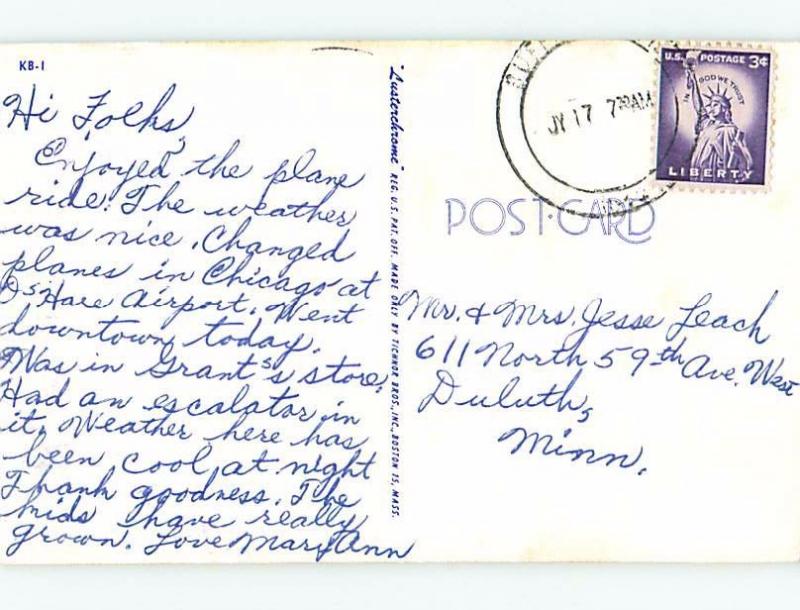 KB-1
Hi Folks,
Enjoyed the plane
ride. The weather
was nice. Changed
planes in Chicago at
O's Hare Airport. Went
downtown today.
Was in Grant's store.
Had an escalator in
it. Weather here has
been cool at night
Thank goodness. The
kids have really
grown. Love Mary Ann
"Lusterchrome" REG. U.S. PAT. OFF. MADE ONLY BY TICHNOR BROS., INC., BOSTON 15, MASS.
JY 17 7 30 AM
U.S. POSTAGE 3¢
IN GOD WE TRUST
LIBERTY
POST-CARD
Mr. & Mrs. Jesse Leach
611 North 59th Ave. West
Duluth,
Minn.